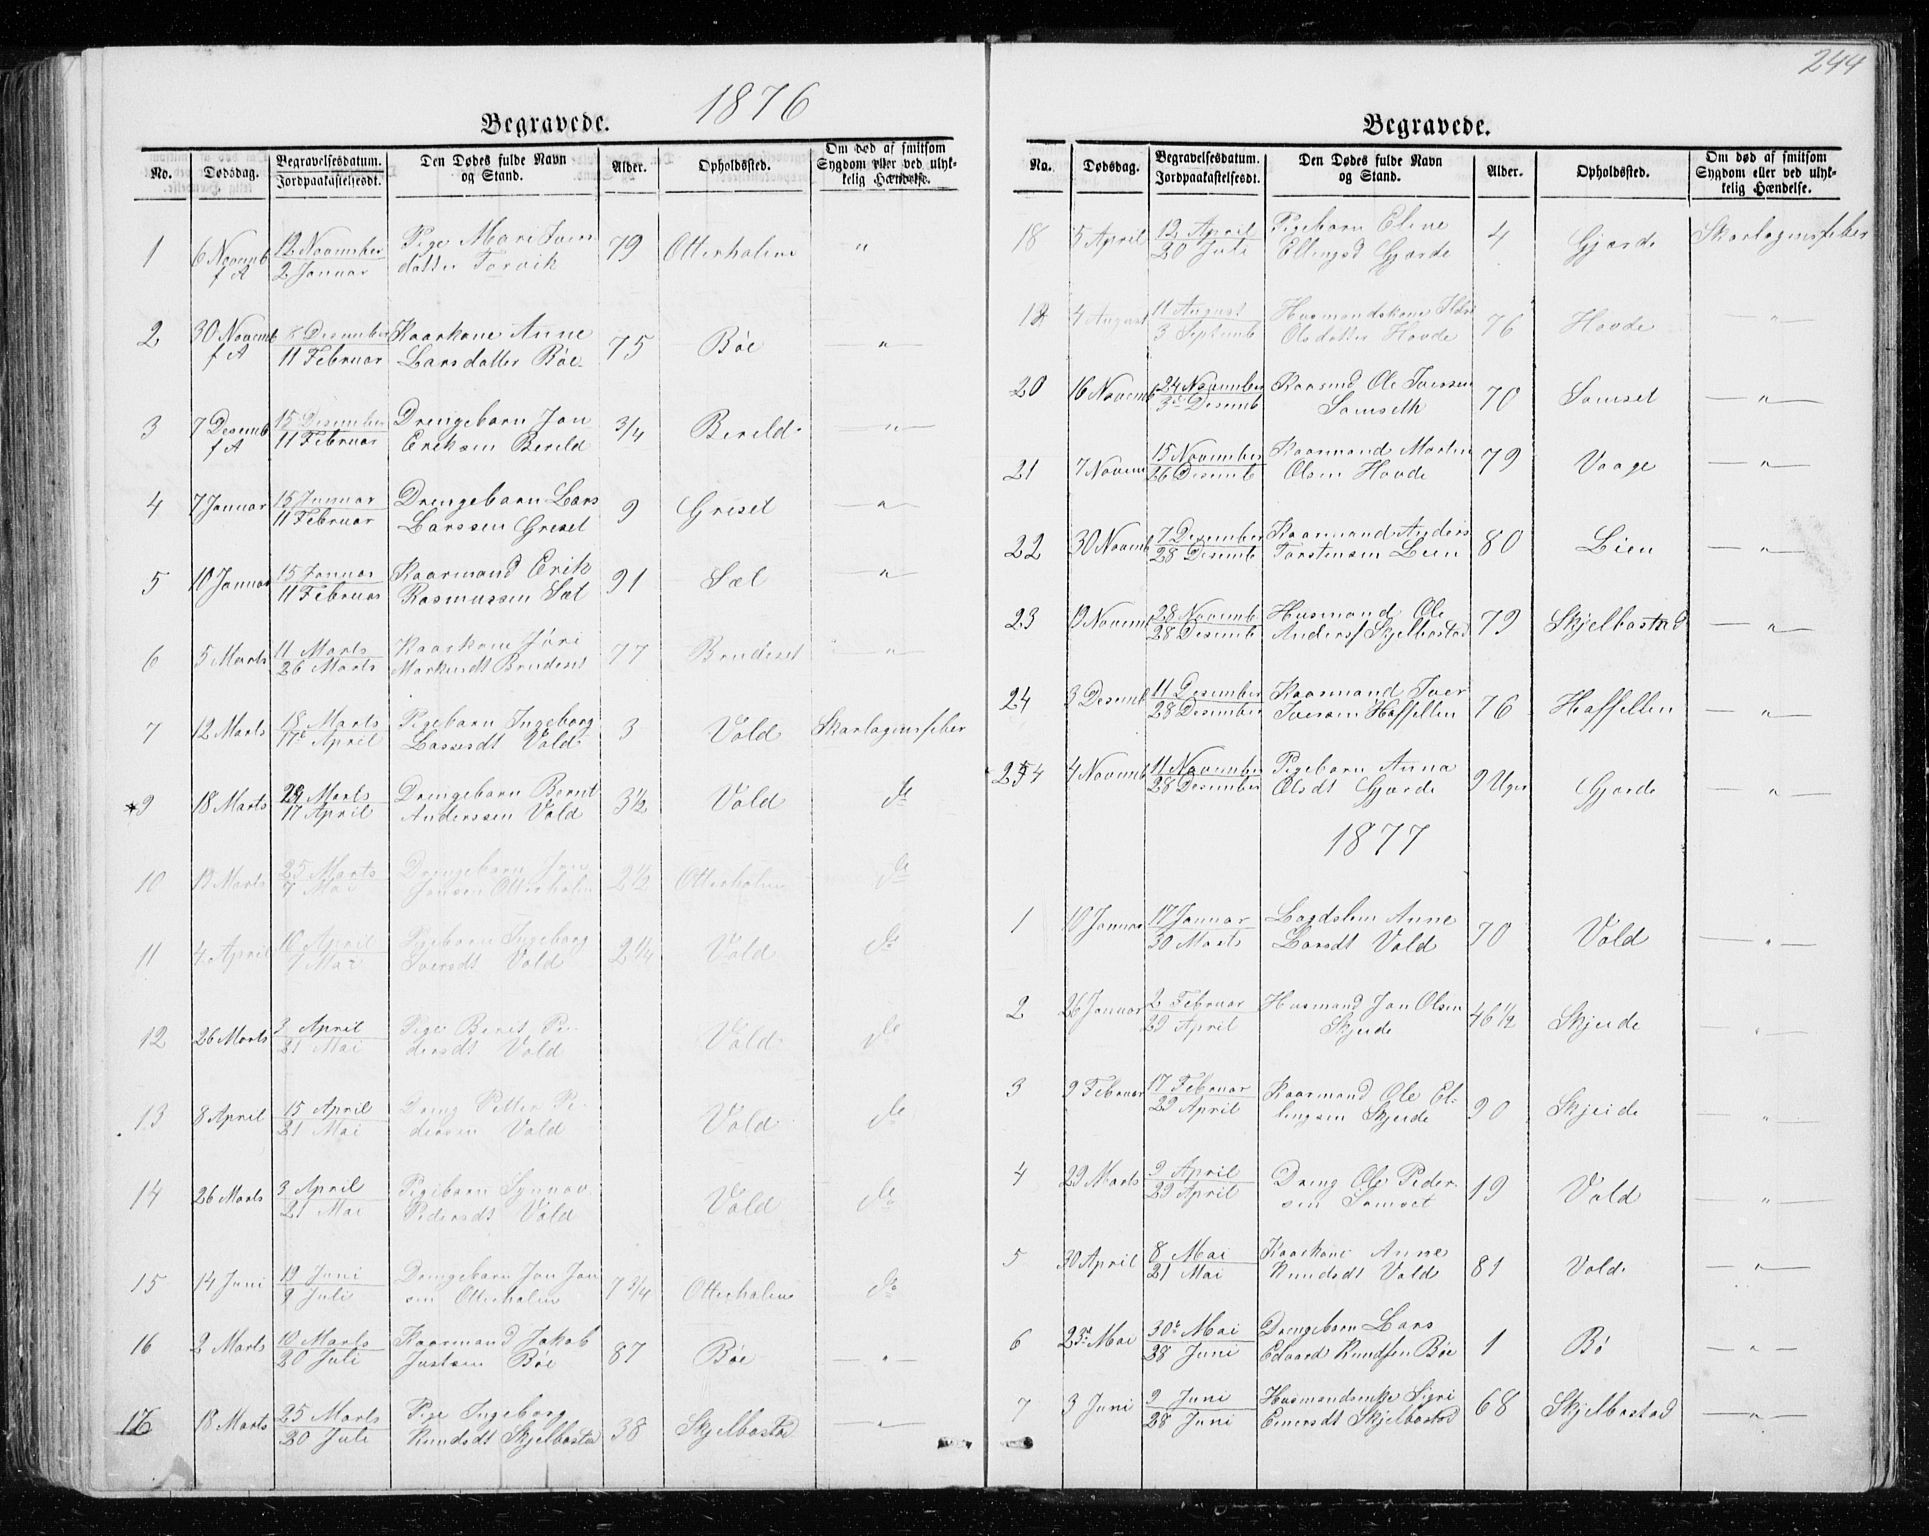 244
1876
Begravede.
No. Dødsdag. Begravelsesdatum. Jordpaakastelsesdt. Den Dødes fulde Navn og Stand. Alder. Opholdssted. Om død af smitsom Sygdom eller ved ulykkelig Hændelse.
1 6 Novemb f A 12 November 2 Januar Pige Mari Iversdatter Torvik 79 Otterholm "
2 30 Novemb f A 8 Desember 11 Februar Kaarkone Anne Larsdatter Böe 75 Böe — " —
3 7 Desemb f A 15 Desember 11 Februar Drengebarn Jon Eriksen Berild 3/4 Berild — " —
4 7 Januar 15 Januar 11 Februar Drengebarn Lars Larssen Griset 9 Griset — " —
5 10 Januar 15 Januar 11 Februar Kaarmand Erik Rasmussen Sæt 91 Sæt — " —
6 5 Marts 11 Marts 26 Marts Kaarkone Jöri Markusdt Brudeset 77 Brudeset — " —
7 12 Marts 18 Marts 17de April Pigebarn Ingeborg Lassesdt Vold 3 Vold Skarlagensfeber
9 18 Marts 24 Marts 17 April Drengebarn Bernt Anderssen Vold 3 1/2 Vold do
10 19 Marts 25 Marts 7 Mai Drengebarn Jon Jonsen Otterholm 2 1/2 Otterholm do
11 4 April 10 April 7 Mai Pigebarn Ingeborg Iversdt Vold 2 1/4 Vold do
12 26 Marts 3 April 21 Mai Pige Berit Pedersdt Vold Vold do
13 8 April 15 April 21 Mai Dreng Petter Pedersen Vold Vold do
14 26 Marts 3 April 21 Mai Pigebarn Synnøv Pedersdt Vold Vold do
15 14 Juni 19 Juni 9 Juli Drengebarn Jon Jonsen Otterholm 7 3/4 Otterholm do
16 2 Marts 10 Marts 20 Juli Kaarmand Jakob Justsen Böe 87 Böe — " —
17 18 Marts 25 Marts 20 Juli Pige Ingeborg Knudsdt Skjelbostad 38 Skjelbostad — " —
Begravede.
No. Dødsdag. Begravelsesdatum. Jordpaakastelsesdt. Den Dødes fulde Navn og Stand. Alder. Opholdssted. Om død af smitsom Sygdom eller ved ulykkelig Hændelse.
18 5 April 12 April 20 Juli Pigebarn Eline Ellingsd Gjørde 4 Gjørde Skarlagensfeber
4 August 11 August 3 Septemb Husmandskone Olsdatter Hovde 76 Hovde — " —
20 16 Novemb 24 November 3de Desemb Kaarmd Ole Iverssen Somseth 70 Somset — " —
21 7 Novem 15 November 26 Desemb Kaarmand Martin Olsen Hovde 79 Vaage — " —
22 30 Novemb 7 Desember 28 Desemb Kaarmand Anders Torstensen Lien 80 Lien — " —
23 19 Novemb 28 Novemb 28 Desemb Husmand Ole Andersf Skjelbostad 79 Skjelbostad — " —
24 3 Desemb 11 Desember 28 Desember Kaarmand Iver Iversen Hoffellen 76 Hoffellen — " —
25 4 Novemb 11 November 28 Desember Pigebarn Anna Olsdt Gjørde 9 Uger Gjørde — " —
1877
1 10 Januar 17 Januar 30 Marts Lægdslem Anne Larsdt Vold 70 Vold — " —
2 26 Januar 2 Februar 29 April Husmand Jon Olsen Skjeide 46 1/2 Skjeide "
3 9 Februar 17 Februar 29 April Kaarmand Ole Ellingsen Skjeide 90 Skjeide — " —
4 29 Marts 9 April 29 April Dreng Ole Pedersen Somset 19 Vold — " —
5 30 April 8 Mai 21 Mai Kaarkone Anne Knudsdt Vold 81 Vold — " —
6 23de Mai 30te Mai 28 Juni Drengebarn Lars Edvard Knudsen Böe 1 Bö — " —
7 3 Juni 9 Juni 28 Juni Husmandsenke Sigri Einersdt Skjelbostad 68 Skjelbostad — " —